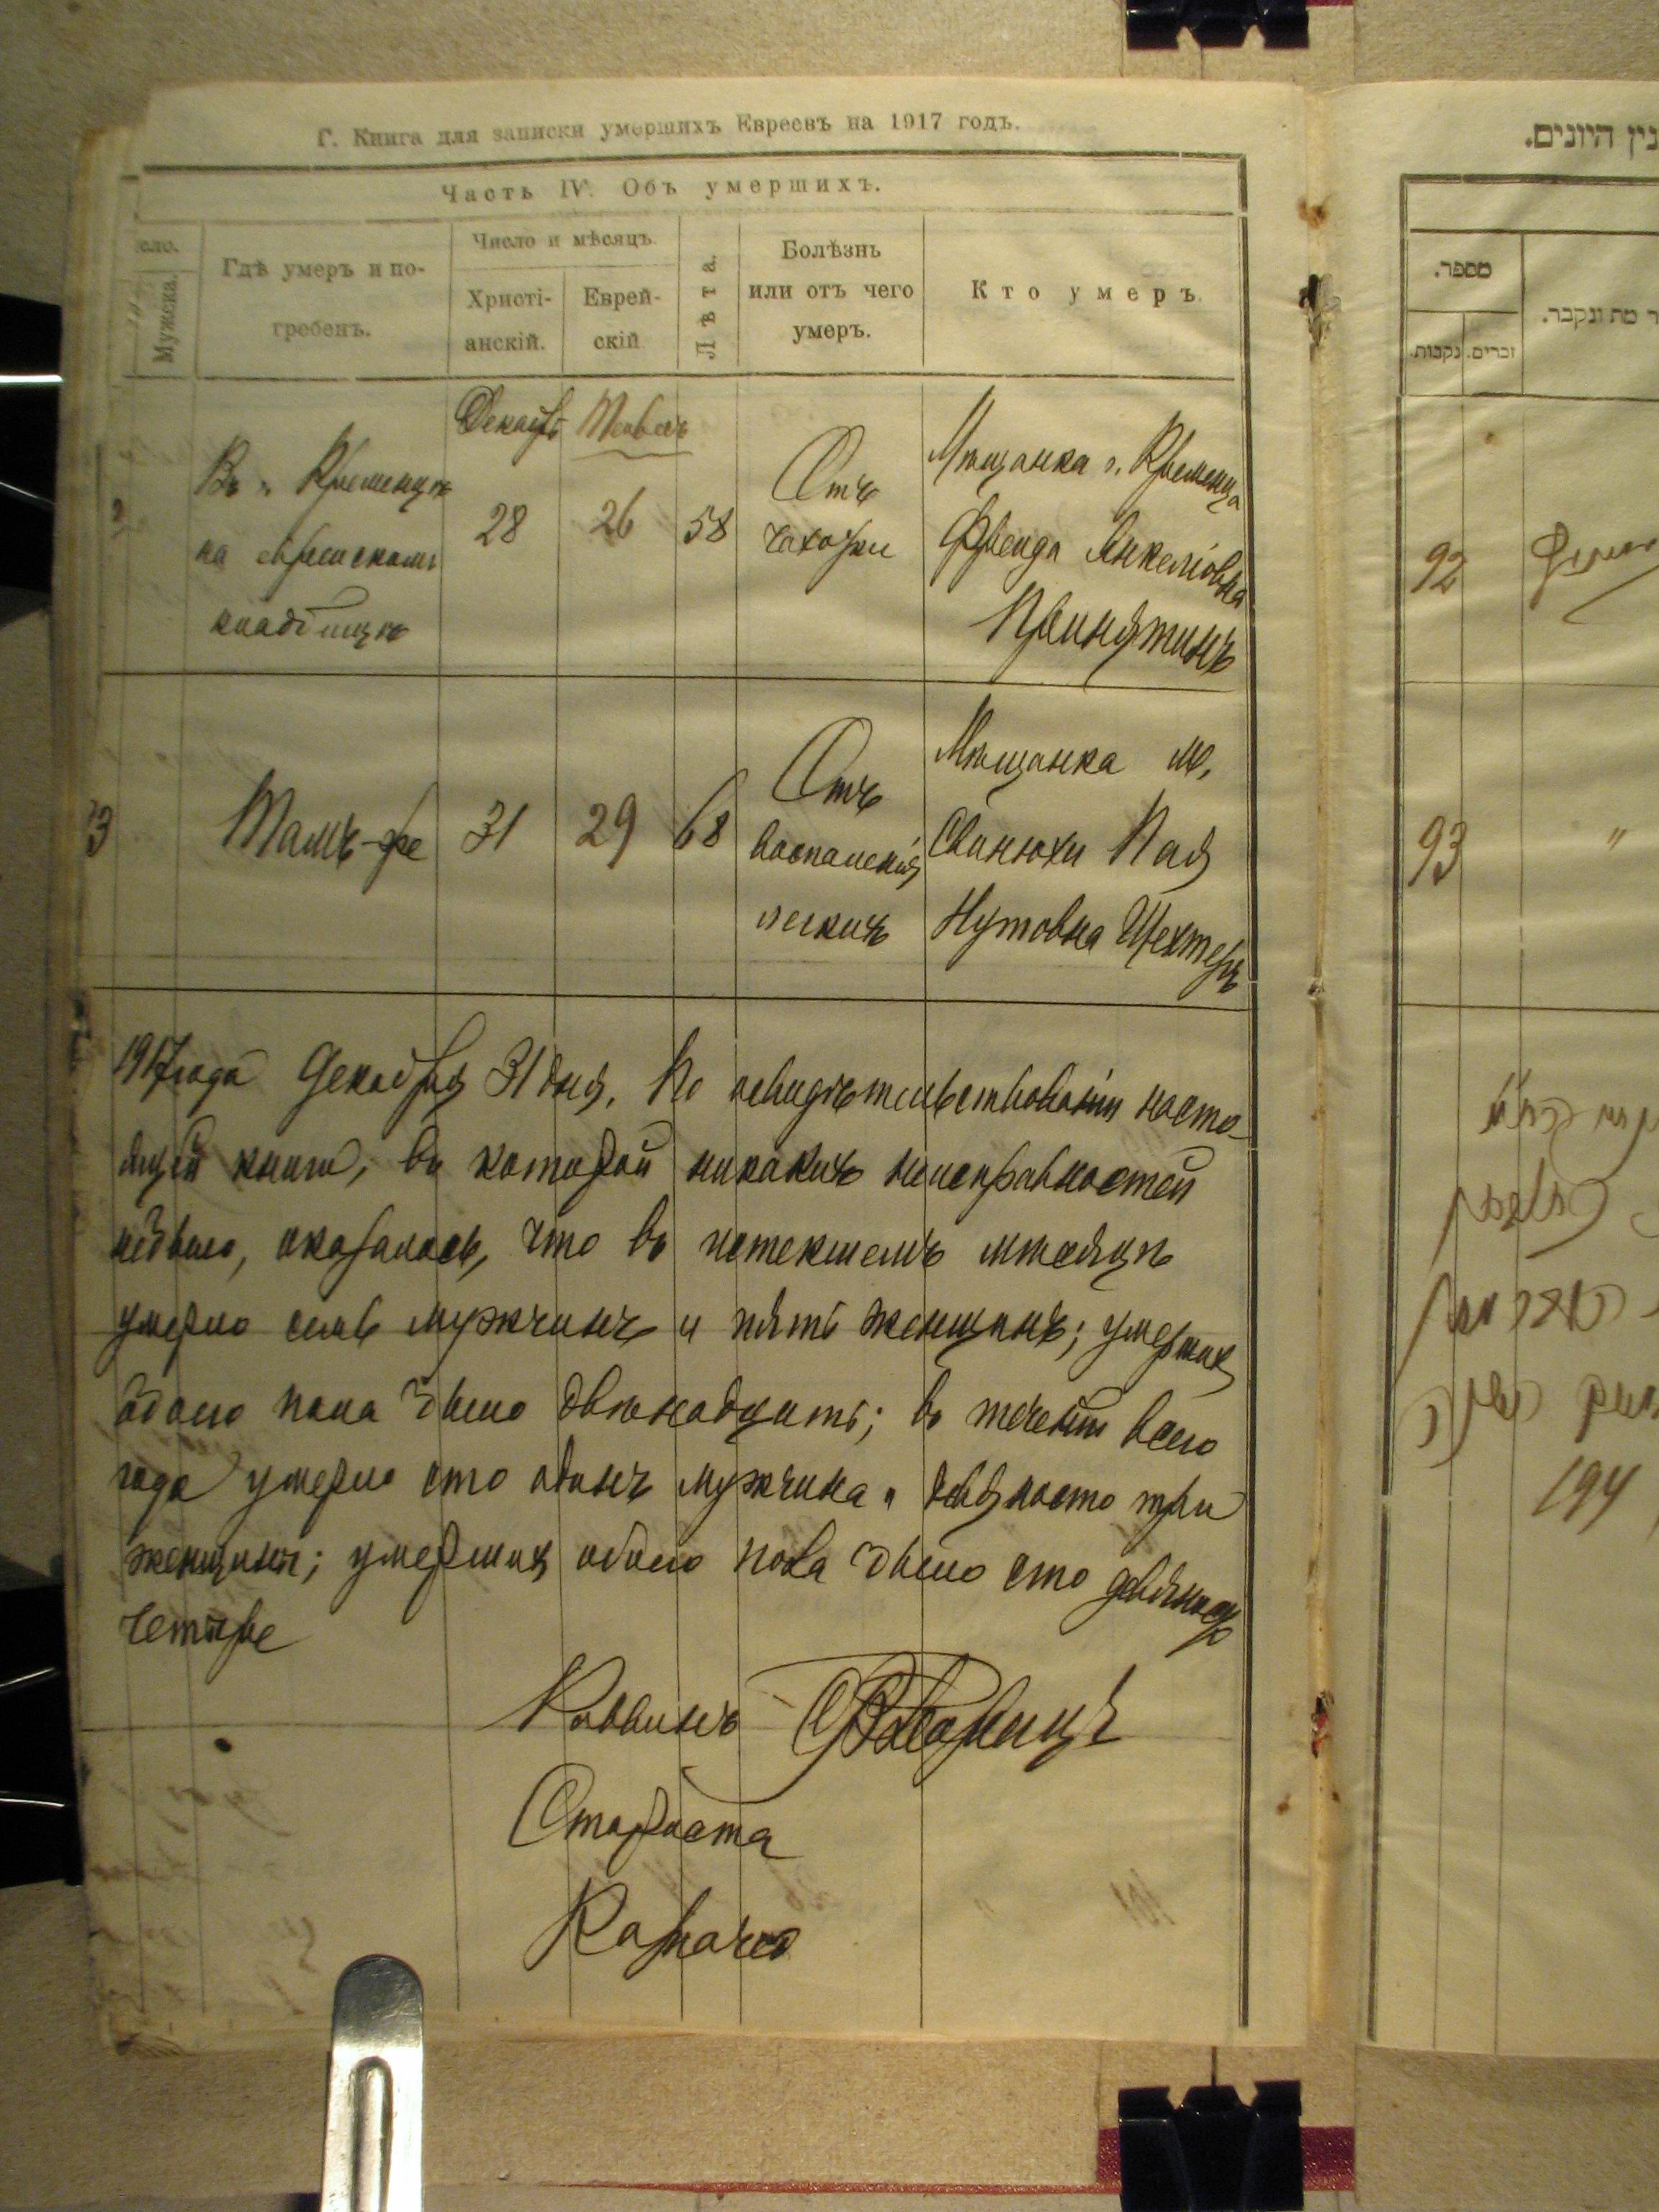 Г. Книга для записки умершихъ Евреевъ на 1917 годъ.
Часть IV. Объ умершихъ.
Мужеска.
Гдѣ умеръ и по-
гребенъ.
Число и мѣсяцъ.
Христі-
анскій.
Еврей-
скій
Лѣта.
Болѣзнь
или отъ чего
умеръ.
Кто умеръ.
Декабр Тевесъ
Въ г. Кременцѣ
на еврейскомъ
кладбищѣ
28
26
58
Отъ
чахотки
Мѣщанка г. Кременца
Фрейда Анкеліовна
3
Тамъ-же
31
29
68
Отъ
воспаленія
легкихъ
Мѣщанка м.
Свинюхи Пая
Нутовна Шехтеръ
1917 года Декабря 31 дня. По освидѣтельствованіи насто-
ящей книги, въ которой никакихъ неисправностей
небыло, оказалось, что въ истекшемъ мѣсяцѣ
умерло семь мужчинъ и пять женщинъ; умершихъ
обоего пола было двѣнадцать; въ теченіи всего
года умерло сто одинъ мужчина и девяносто три
женщины; умершихъ обоего пола было сто девяносто
четыре
Раввинъ
Староста
Казначей
נין היונים.
מספר.
ר מת ונקבר.
זכרים.
נקבות.
92
93
"
194